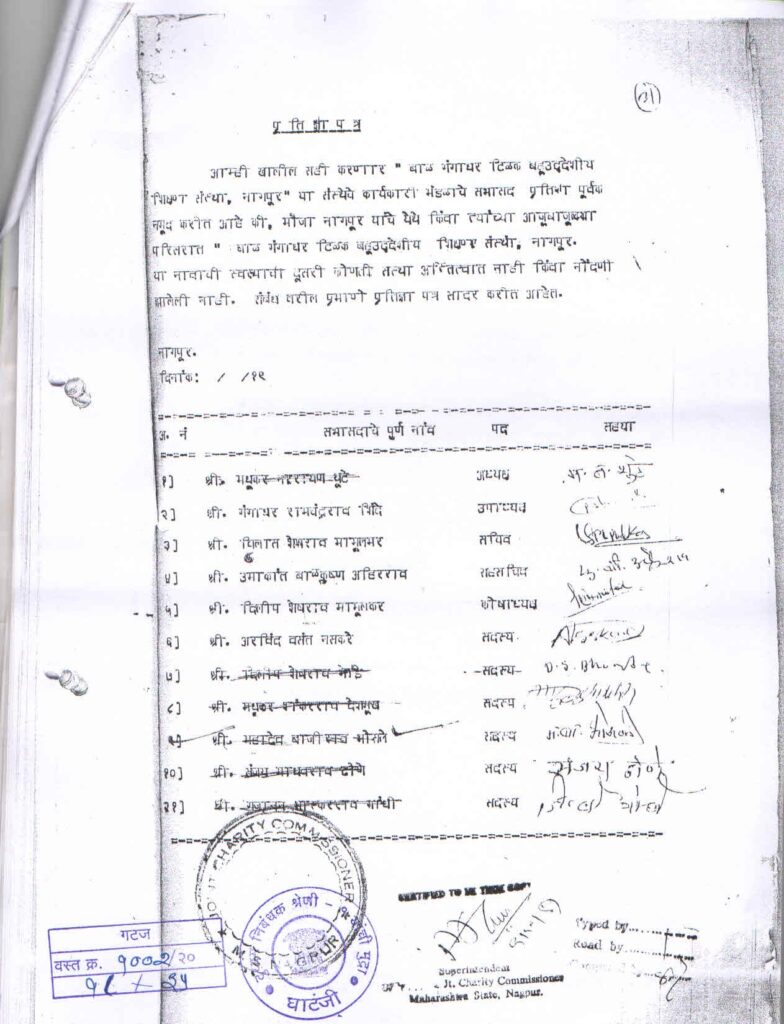 प्रतिज्ञापत्र
आम्ही खालील सही करणार " बाळ गंगाधर टिळक बहूउद्देशीय
शिक्षण संस्था, नागपूर" या संस्थेचे कार्यकारी मंडळाचे सभासद प्रतिज्ञा पूर्वक
नमूद करीत आहे की, मौजा नागपूर यांचे येथे किंवा त्यांच्या आजूबाजूच्या
परिसरात " बाळ गंगाधर टिळक बहूउद्देशीय शिक्षण संस्था, नागपूर.
या नावाची स्वरूपाची दूसरी कोणती संस्था अस्तित्वात नाही किंवा नोंदणी
झालेली नाही. संबंध वरील प्रमाणे प्रतिज्ञा पत्र सादर करीत आहेत.
नागपूर.
दिनांक: / /१९
अ. नं सभासदाचे पुर्ण नांव पद सहया
१] श्री. मधूकर नारायण धूटे अध्यक्ष
२] श्री. गंगाधर रामचंद्रराव शिंदे उपाध्यक्ष
३] श्री. विलास शेषराव सचिव
४] श्री. उमाकांत बाळकृष्ण अहिरराव सहसचिव
५] श्री. दिलीप शेषराव कोषाध्यक्ष
६] श्री. अरविंद वसंत नासकरे सदस्य
७] श्री. दिलीप शेषराव सदस्य D.S. Bhonde
८] श्री. मधूकर शंकरराव देशमूख सदस्य
९] श्री. महादेव बाजीराव भोसले सदस्य
१०] श्री. संजय माधवराव ढोणे सदस्य संजय ढोणे
११] श्री. भास्करराव गांधी सदस्य
JOINT CHARITY COMMISSIONER
निबंधक श्रेणी - १
घाटंजी
गटज
दस्त क्र. १००२/२०
१८ / २५
CERTIFIED TO BE TRUE COPY
Superintendent
Jt. Charity Commissioner
Maharashtra State, Nagpur.
Typed by......
Read by......